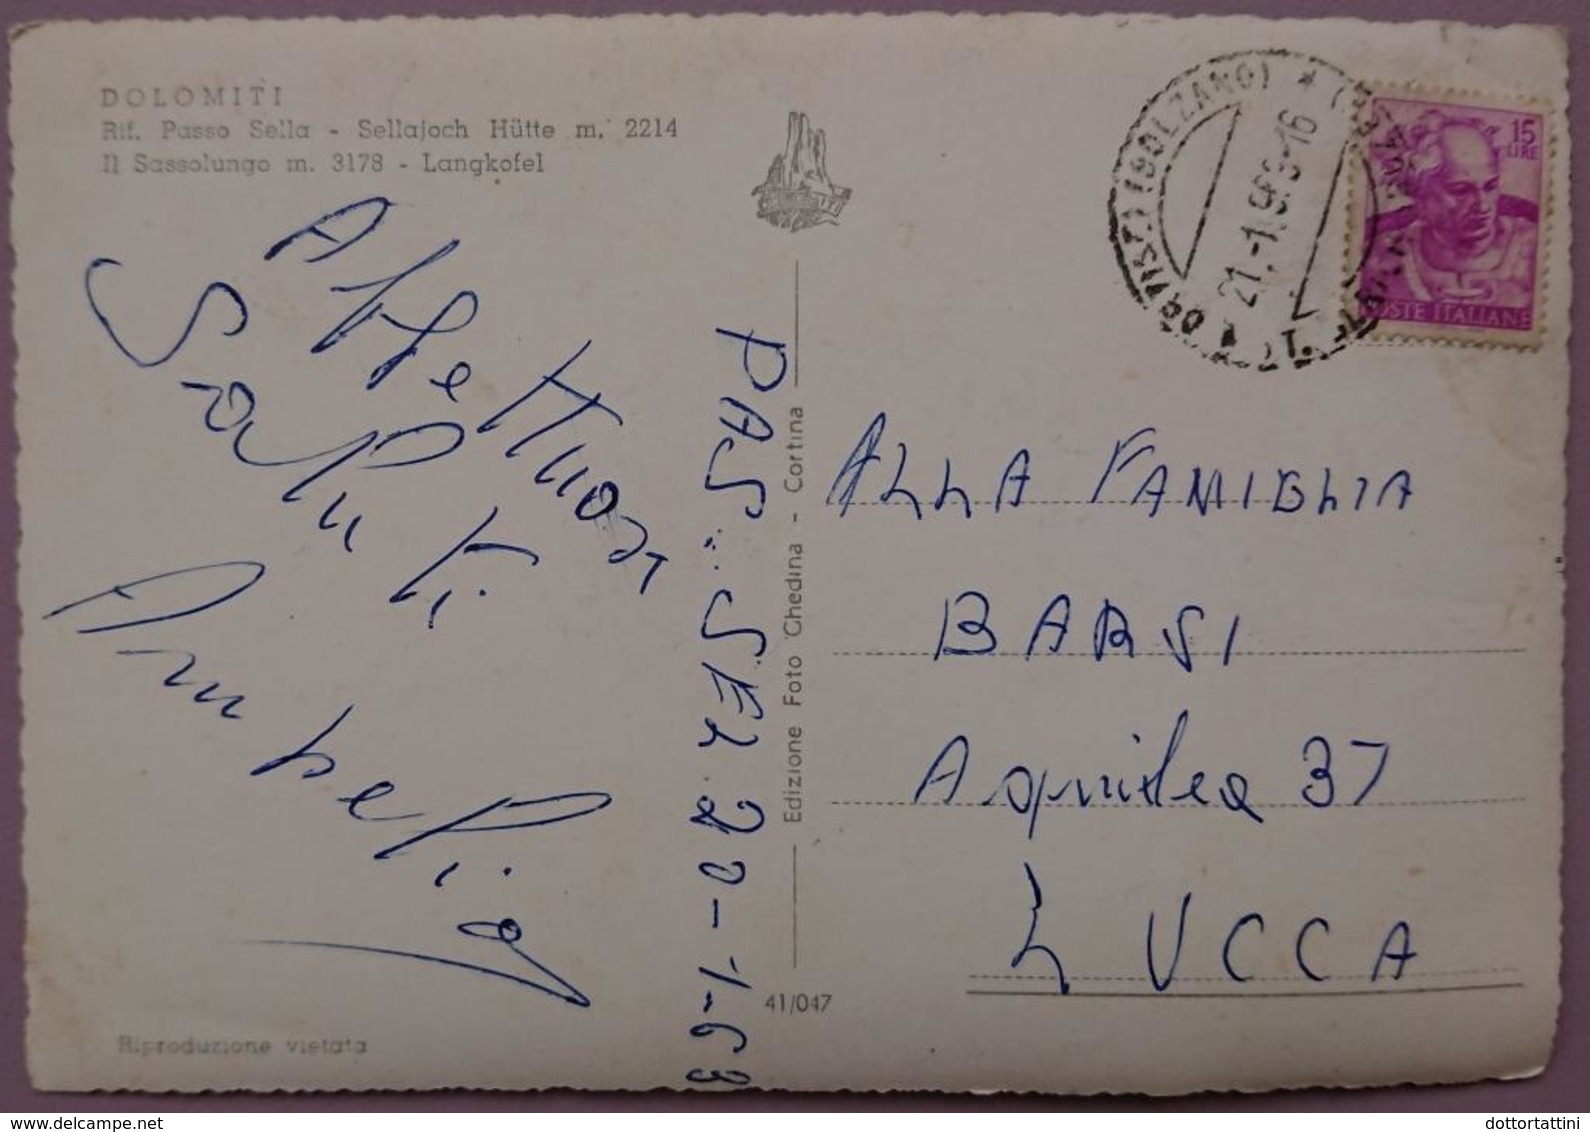 DOLOMITI
Rif. Passo Sella - Sellajoch Hütte m. 2214
Il Sassolungo m. 3178 - Langkofel
Affettuosi
Saluti
Ampelia
PAS. SEL. 20-1-63
Edizione Foto Ghedina - Cortina
41/047
Riproduzione vietata
DOLOMITI
(BOLZANO)
21.-1.963-16
15
LIRE
POSTE ITALIANE
ALLA FAMIGLIA
BARSI
Aquilea 37
LUCCA
dottortattini